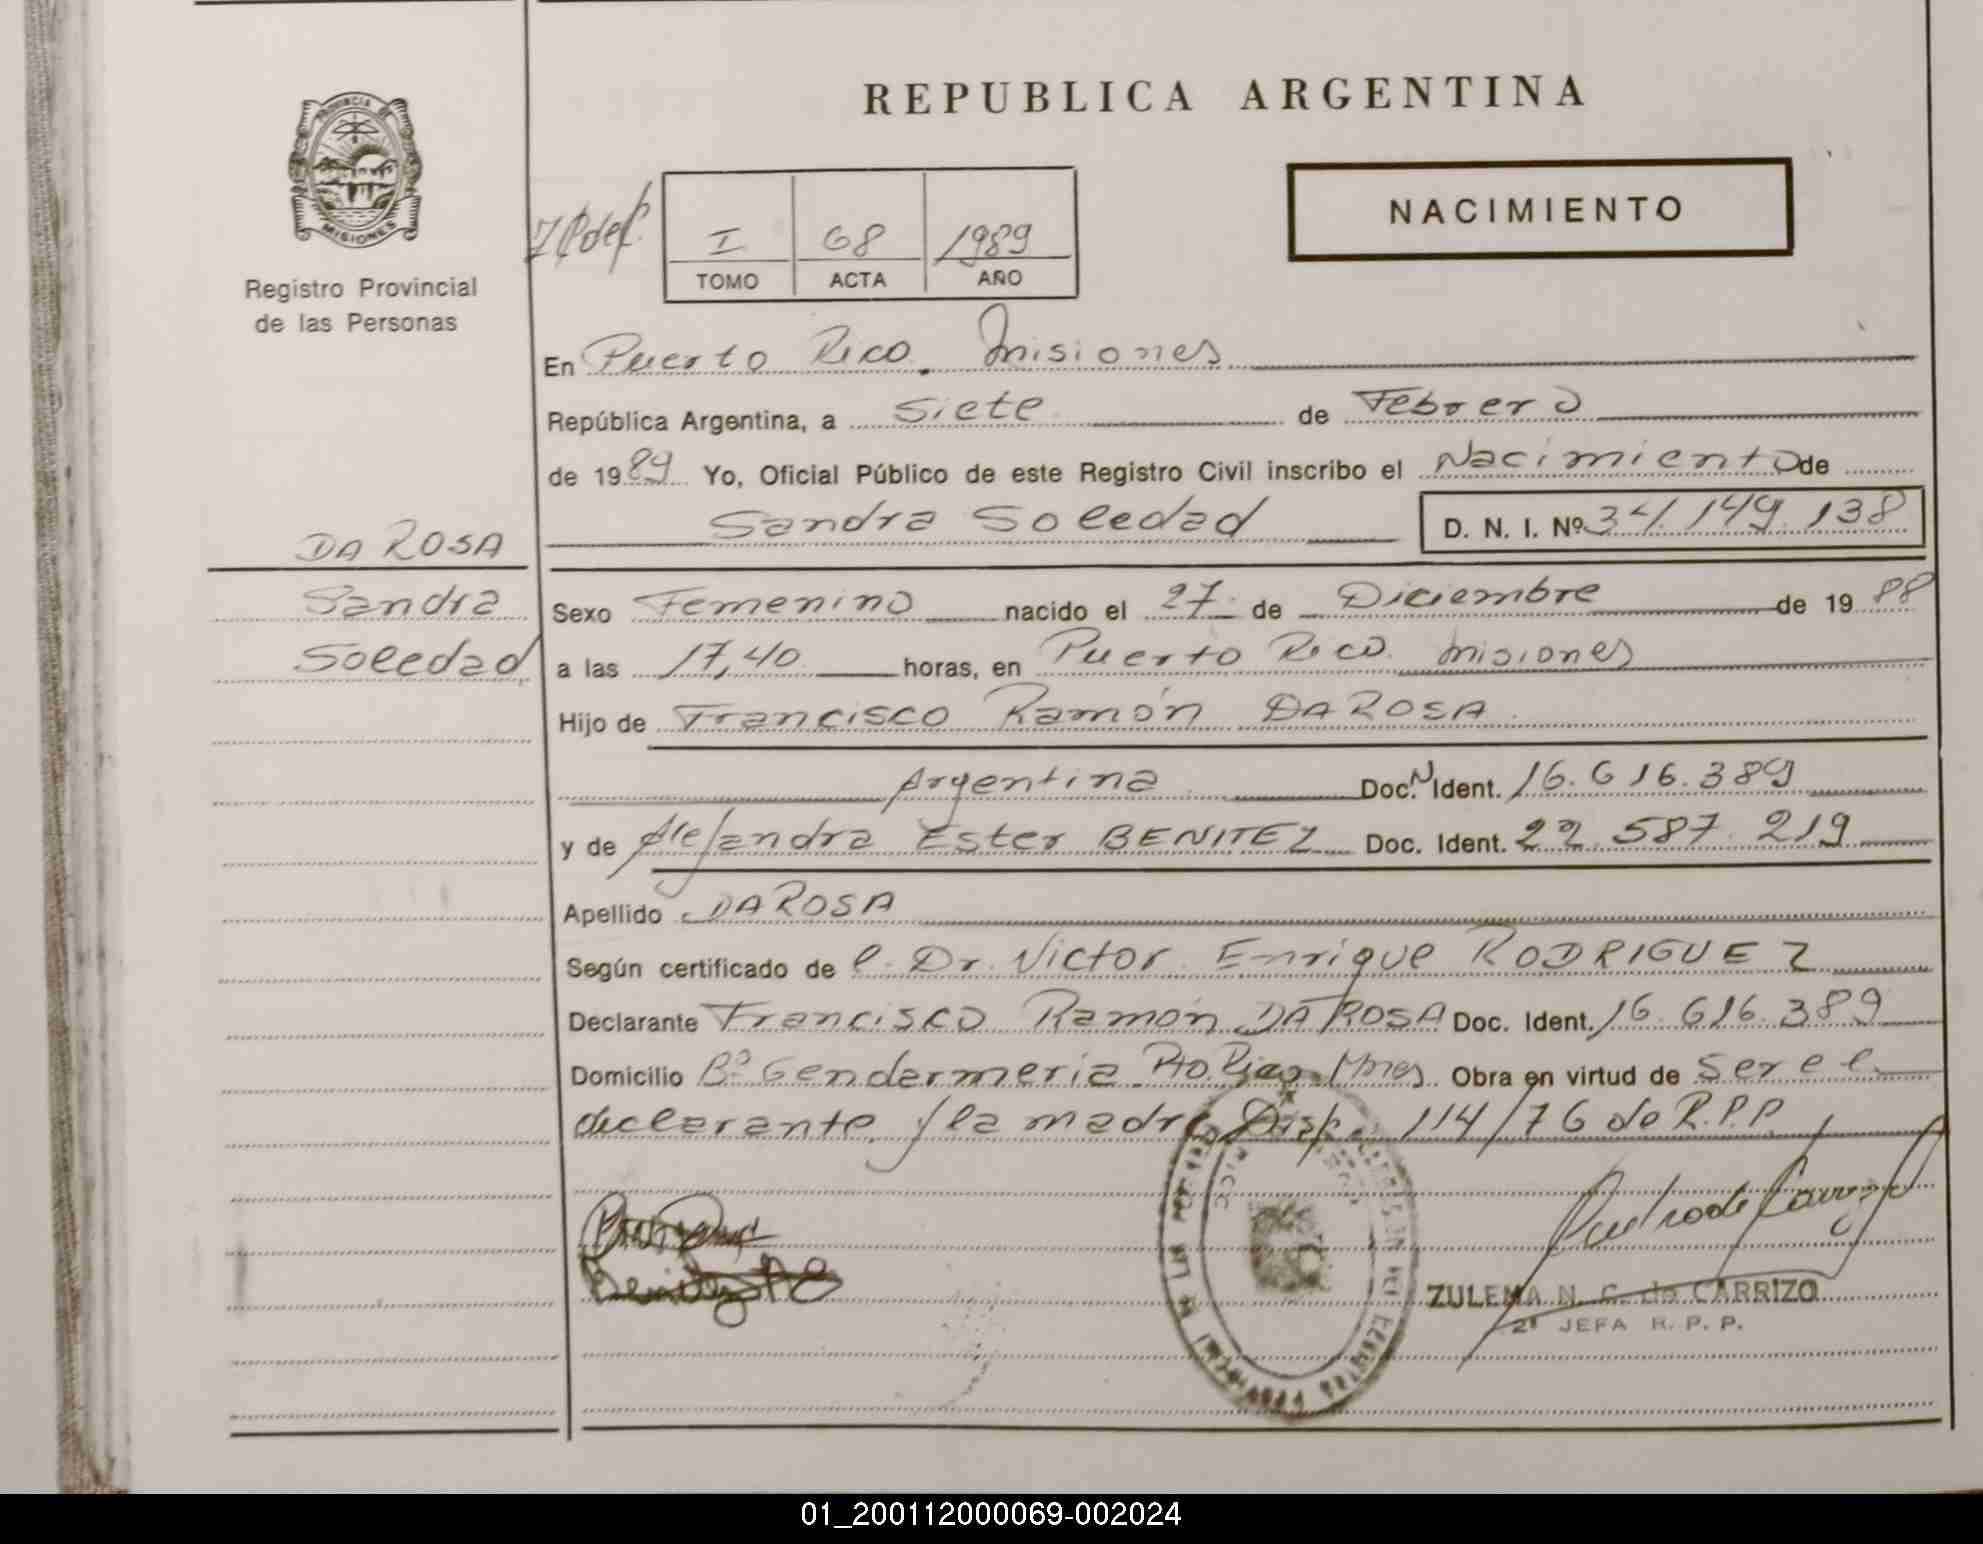 REPUBLICA ARGENTINA
PROVINCIA DE
MISIONES
Registro Provincial
de las Personas
NACIMIENTO
I 68 1989
TOMO ACTA AÑO
En Puerto Rico. Misiones
República Argentina, a siete de Febrero
de 1989 Yo, Oficial Público de este Registro Civil inscribo el Nacimiento de
Sandra Soledad D. N. I. Nº 34.149.138
DA ROSA
Sandra
Soledad
Sexo Femenino nacido el 27 de Diciembre de 1988
a las 17,40 horas, en Puerto Rico. Misiones
Hijo de Francisco Ramón DA ROSA
Argentina Doc. N Ident. 16.616.389
y de Alejandra Ester BENITEZ Doc. Ident. 22.587.219
Apellido DA ROSA
Según certificado de l. Dr. Victor Enrique RODRIGUEZ
Declarante Francisco Ramón DA ROSA Doc. Ident. 16.616.389
Domicilio Bº Gendarmeria Pto. Rico Mnes. Obra en virtud de ser el
declarante y la madre Disp. 114/76 de R.P.P.
ZULEMA N. C. de CARRIZO
2ª JEFA R. P. P.
01_200112000069-002024